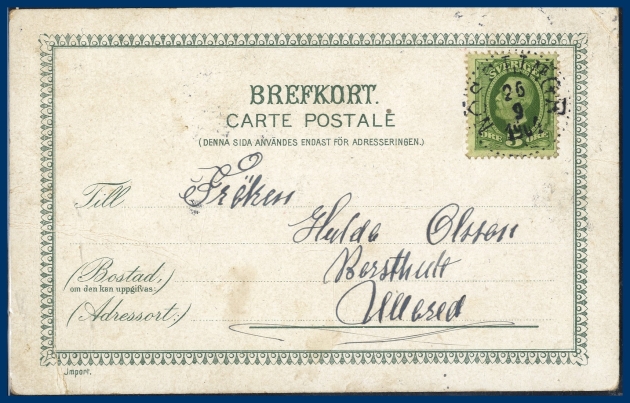 SVERIGE
26
9
1904
5
BREFKORT.
CARTE POSTALE
(DENNA SIDA ANVÄNDES ENDAST FÖR ADRESSERINGEN.)
Till Fröken
Hulda Olsson
(Bostad,)
om den kan uppgifvas:
(Adressort:) Ullared
Import.